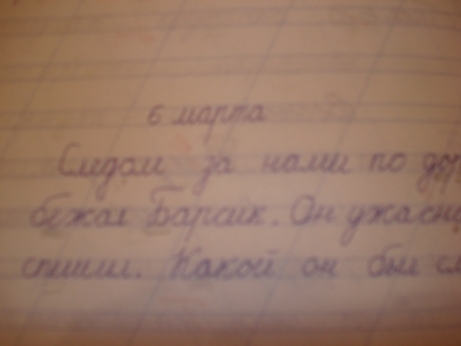 6 марта
Следом за нами по дор
бежал Барсик. Он ужасно
спешил. Какой он был см